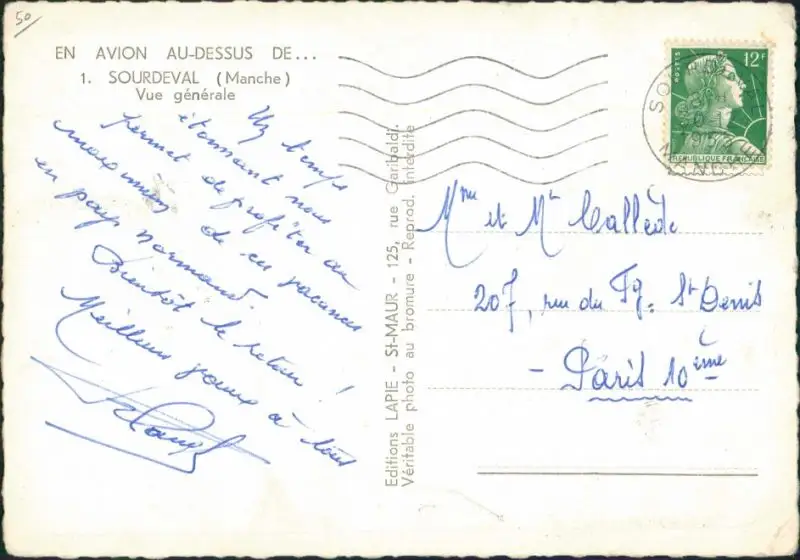 50
EN AVION AU-DESSUS DE...
1. SOURDEVAL (Manche)
Vue générale
Un temps
étonnant nous
permet de profiter au
maximum de ces vacances
en pays normand.
Bientôt le retour !
Meilleurs à tous
Editions LAPIE - St-MAUR - 125, rue Garibaldi.
Véritable photo au bromure - Reprod. interdite
POSTES
12F
REPUBLIQUE FRANÇAISE
Mme et Mr Callède
207, rue du Fg. St Denis
- Paris 10ème